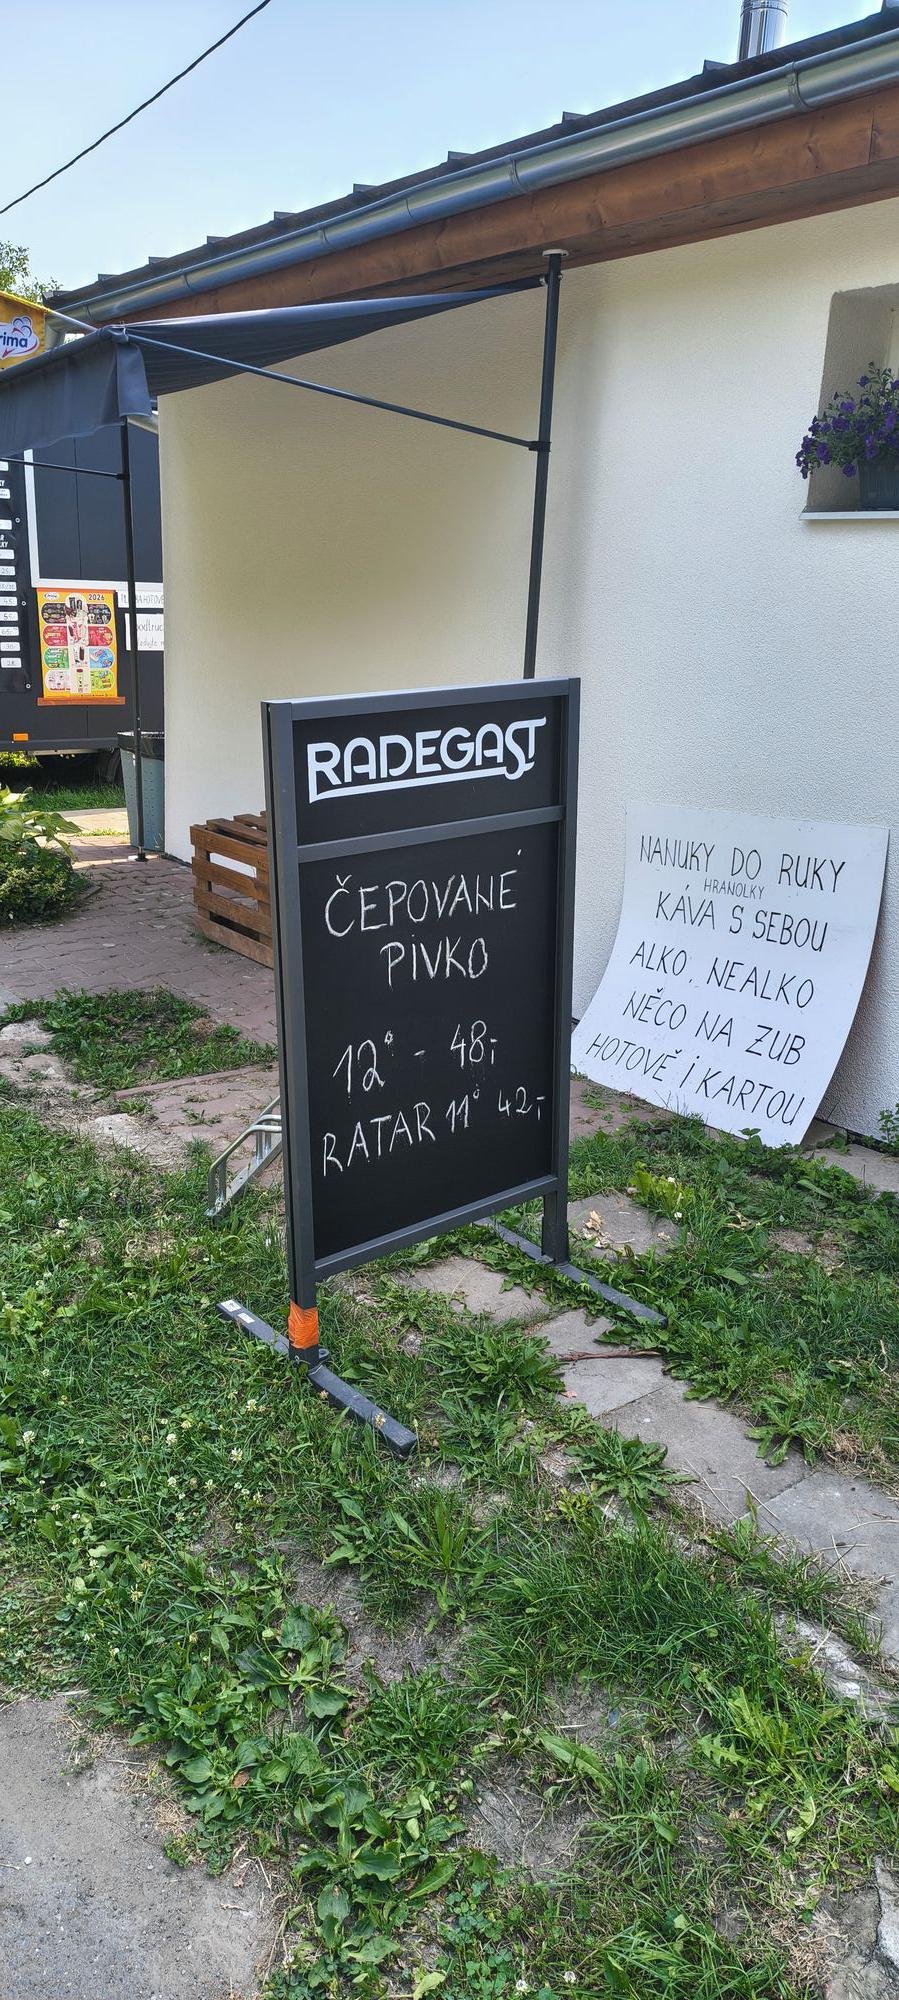 rima
2026
RADEGAST
ČEPOVANÉ
PIVKO
12° - 48,-
RATAR 11° 42,-
NANUKY DO RUKY
HRANOLKY
KÁVA S SEBOU
ALKO, NEALKO
NĚCO NA ZUB
HOTOVĚ i KARTOU